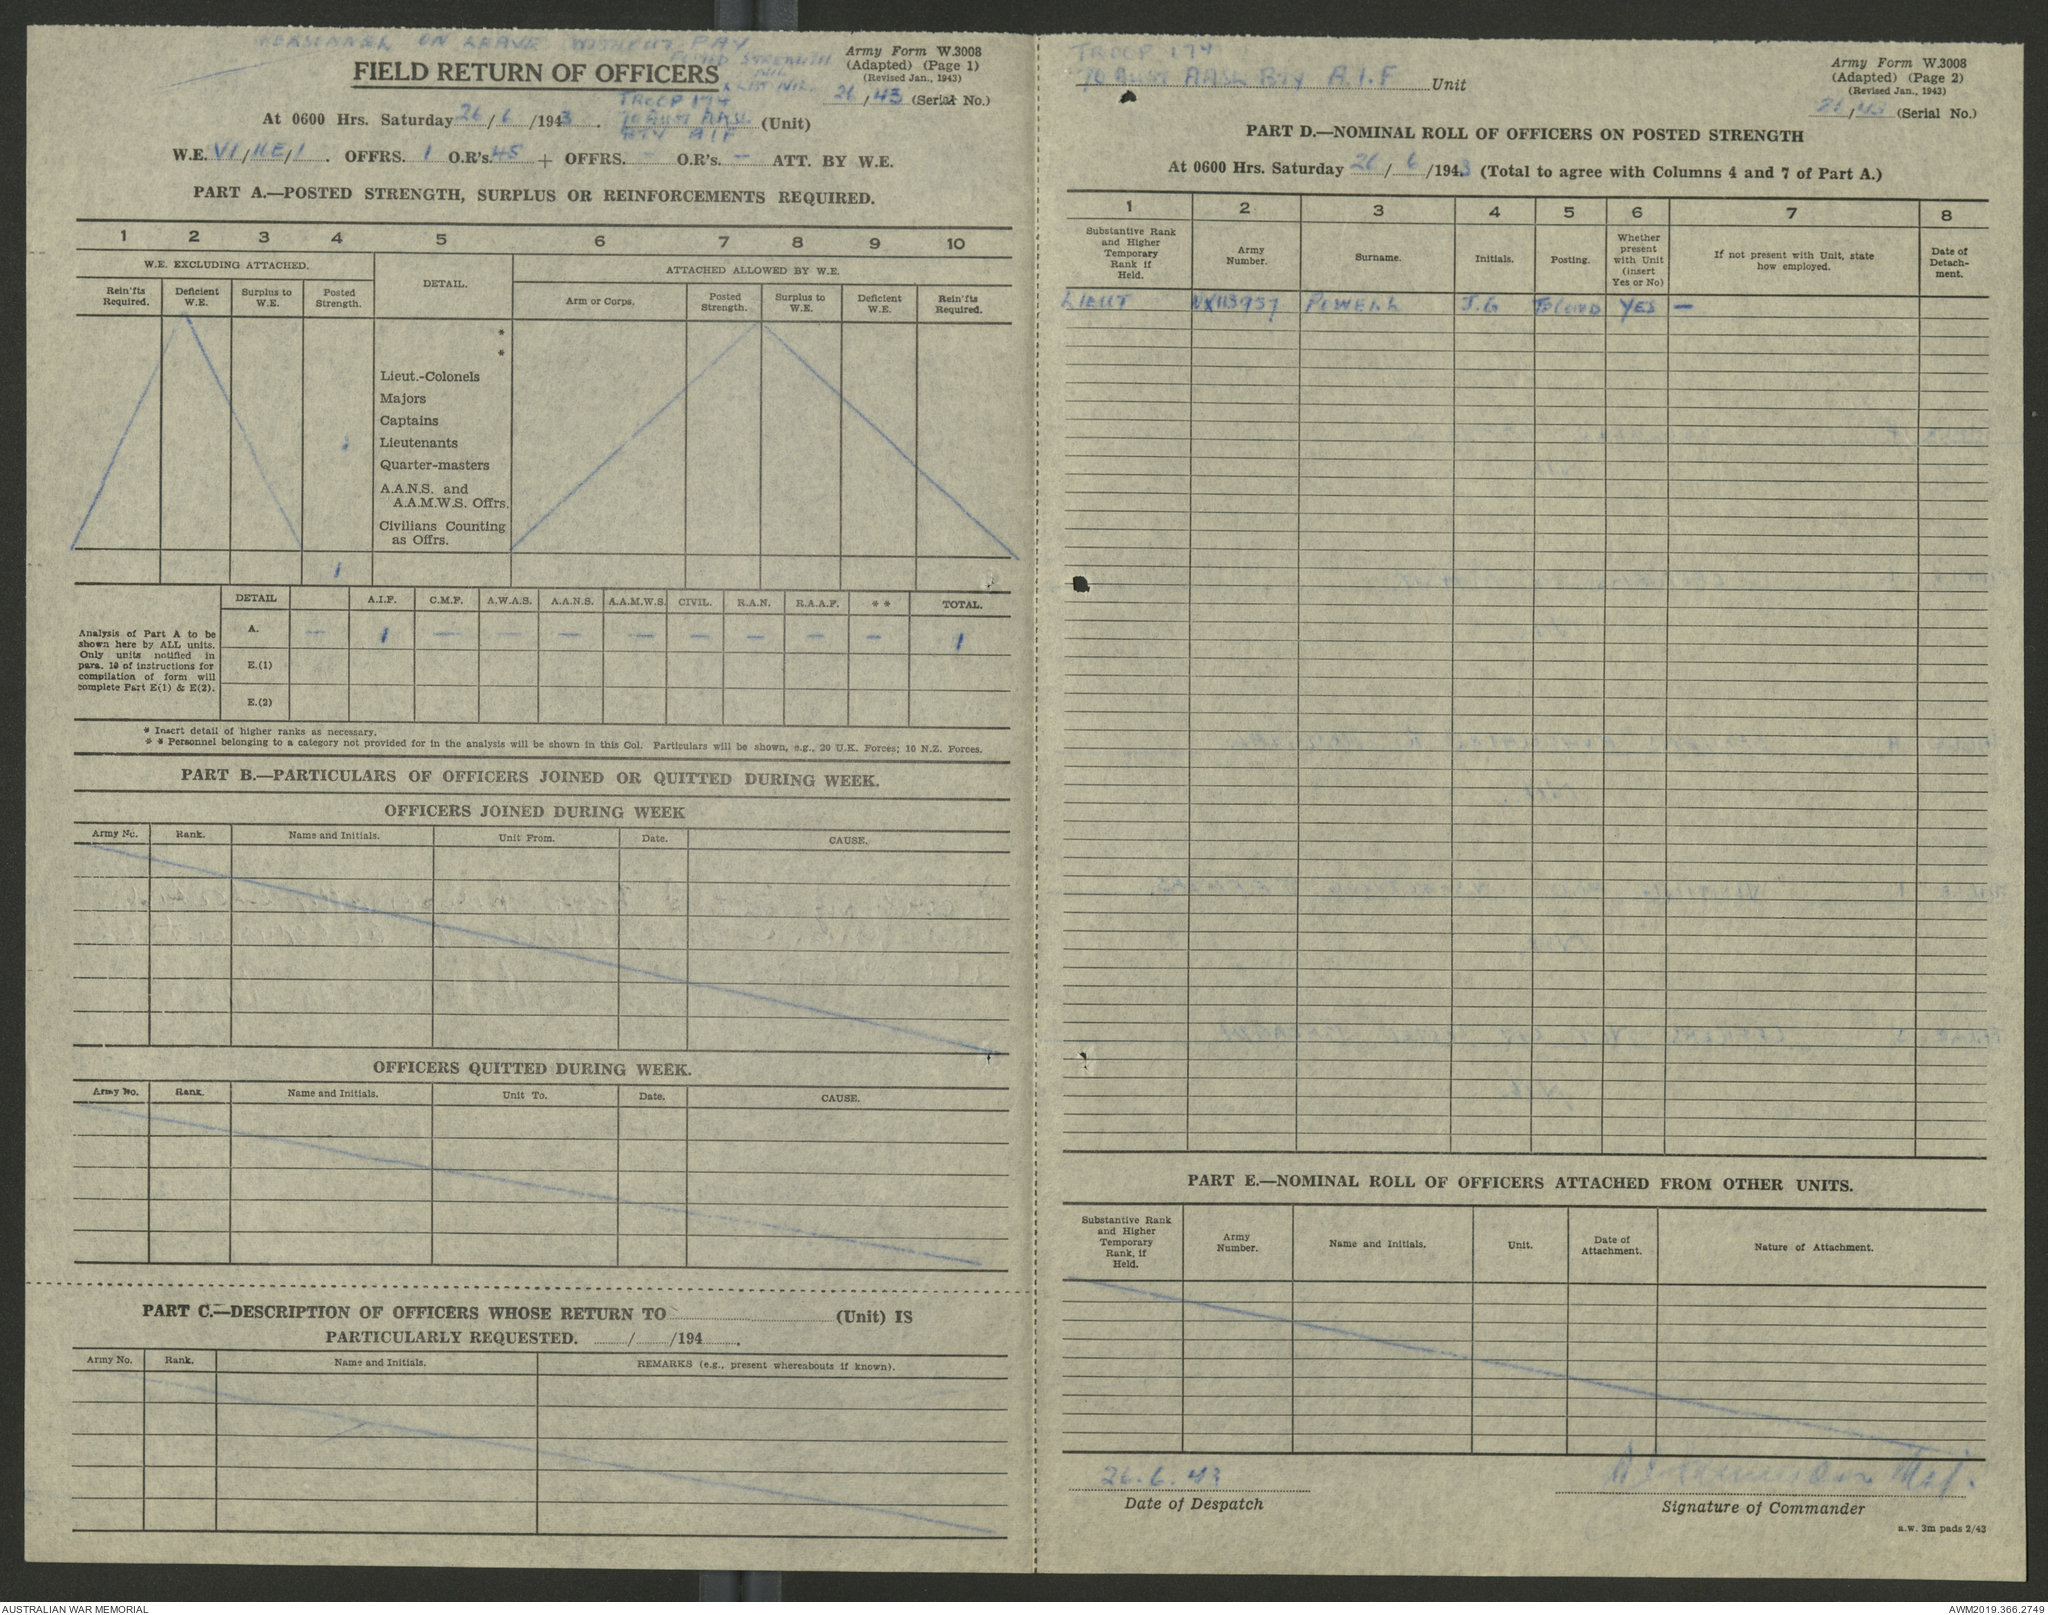 PERSONNEL ON LEAVE WITHOUT PAY
POSTED STRENGTH NIL
X LIST NIL
Army Form W.3008
(Adapted) (Page 1)
(Revised Jan., 1943)
FIELD RETURN OF OFFICERS
26/43 (Serial No.)
At 0600 Hrs. Saturday 26/6/1943. TROOP 174 70 AUST AASL BTY AIF (Unit)
W.E. VI/IIE/1. OFFRS. 1 O.R's. 45 + OFFRS. - O.R's. - ATT. BY W.E.
PART A.—POSTED STRENGTH, SURPLUS OR REINFORCEMENTS REQUIRED.
1 2 3 4 5 6 7 8 9 10
W.E. EXCLUDING ATTACHED. DETAIL. ATTACHED ALLOWED BY W.E.
Rein'fts Required. Deficient W.E. Surplus to W.E. Posted Strength. Arm or Corps. Posted Strength. Surplus to W.E. Deficient W.E. Rein'fts Required.
*
*
Lieut.-Colonels
Majors
Captains
1 Lieutenants
Quarter-masters
A.A.N.S. and
A.A.M.W.S. Offrs.
Civilians Counting
as Offrs.
1
DETAIL A.I.F. C.M.F. A.W.A.S. A.A.N.S. A.A.M.W.S. CIVIL. R.A.N. R.A.A.F. * * TOTAL.
A. — 1 — — — — — — — — 1
E.(1)
E.(2)
Analysis of Part A to be
shown here by ALL units.
Only units notified in
para. 10 of instructions for
compilation of form will
complete Part E(1) & E(2).
* Insert detail of higher ranks as necessary.
* * Personnel belonging to a category not provided for in the analysis will be shown in this Col. Particulars will be shown, e.g., 20 U.K. Forces; 10 N.Z. Forces.
PART B.—PARTICULARS OF OFFICERS JOINED OR QUITTED DURING WEEK.
OFFICERS JOINED DURING WEEK
Army No. Rank. Name and Initials. Unit From. Date. CAUSE.
OFFICERS QUITTED DURING WEEK.
Army No. Rank. Name and Initials. Unit To. Date. CAUSE.
PART C.—DESCRIPTION OF OFFICERS WHOSE RETURN TO (Unit) IS
PARTICULARLY REQUESTED. / /194 .
Army No. Rank. Name and Initials. REMARKS (e.g., present whereabouts if known).
TROOP 174
70 AUST AASL BTY A.I.F Unit
Army Form W.3008
(Adapted) (Page 2)
(Revised Jan., 1943)
26/43 (Serial No.)
PART D.—NOMINAL ROLL OF OFFICERS ON POSTED STRENGTH
At 0600 Hrs. Saturday 26/6/1943 (Total to agree with Columns 4 and 7 of Part A.)
1 2 3 4 5 6 7 8
Substantive Rank and Higher Temporary Rank if Held. Army Number. Surname. Initials. Posting. Whether present with Unit (insert Yes or No) If not present with Unit, state how employed. Date of Detachment.
LIEUT NX113937 POWELL J.G YES —
PART E.—NOMINAL ROLL OF OFFICERS ATTACHED FROM OTHER UNITS.
Substantive Rank and Higher Temporary Rank, if Held. Army Number. Name and Initials. Unit. Date of Attachment. Nature of Attachment.
26.6.43 Maj.
Date of Despatch Signature of Commander
a.w. 3m pads 2/43
AUSTRALIAN WAR MEMORIAL AWM2019.366.2749